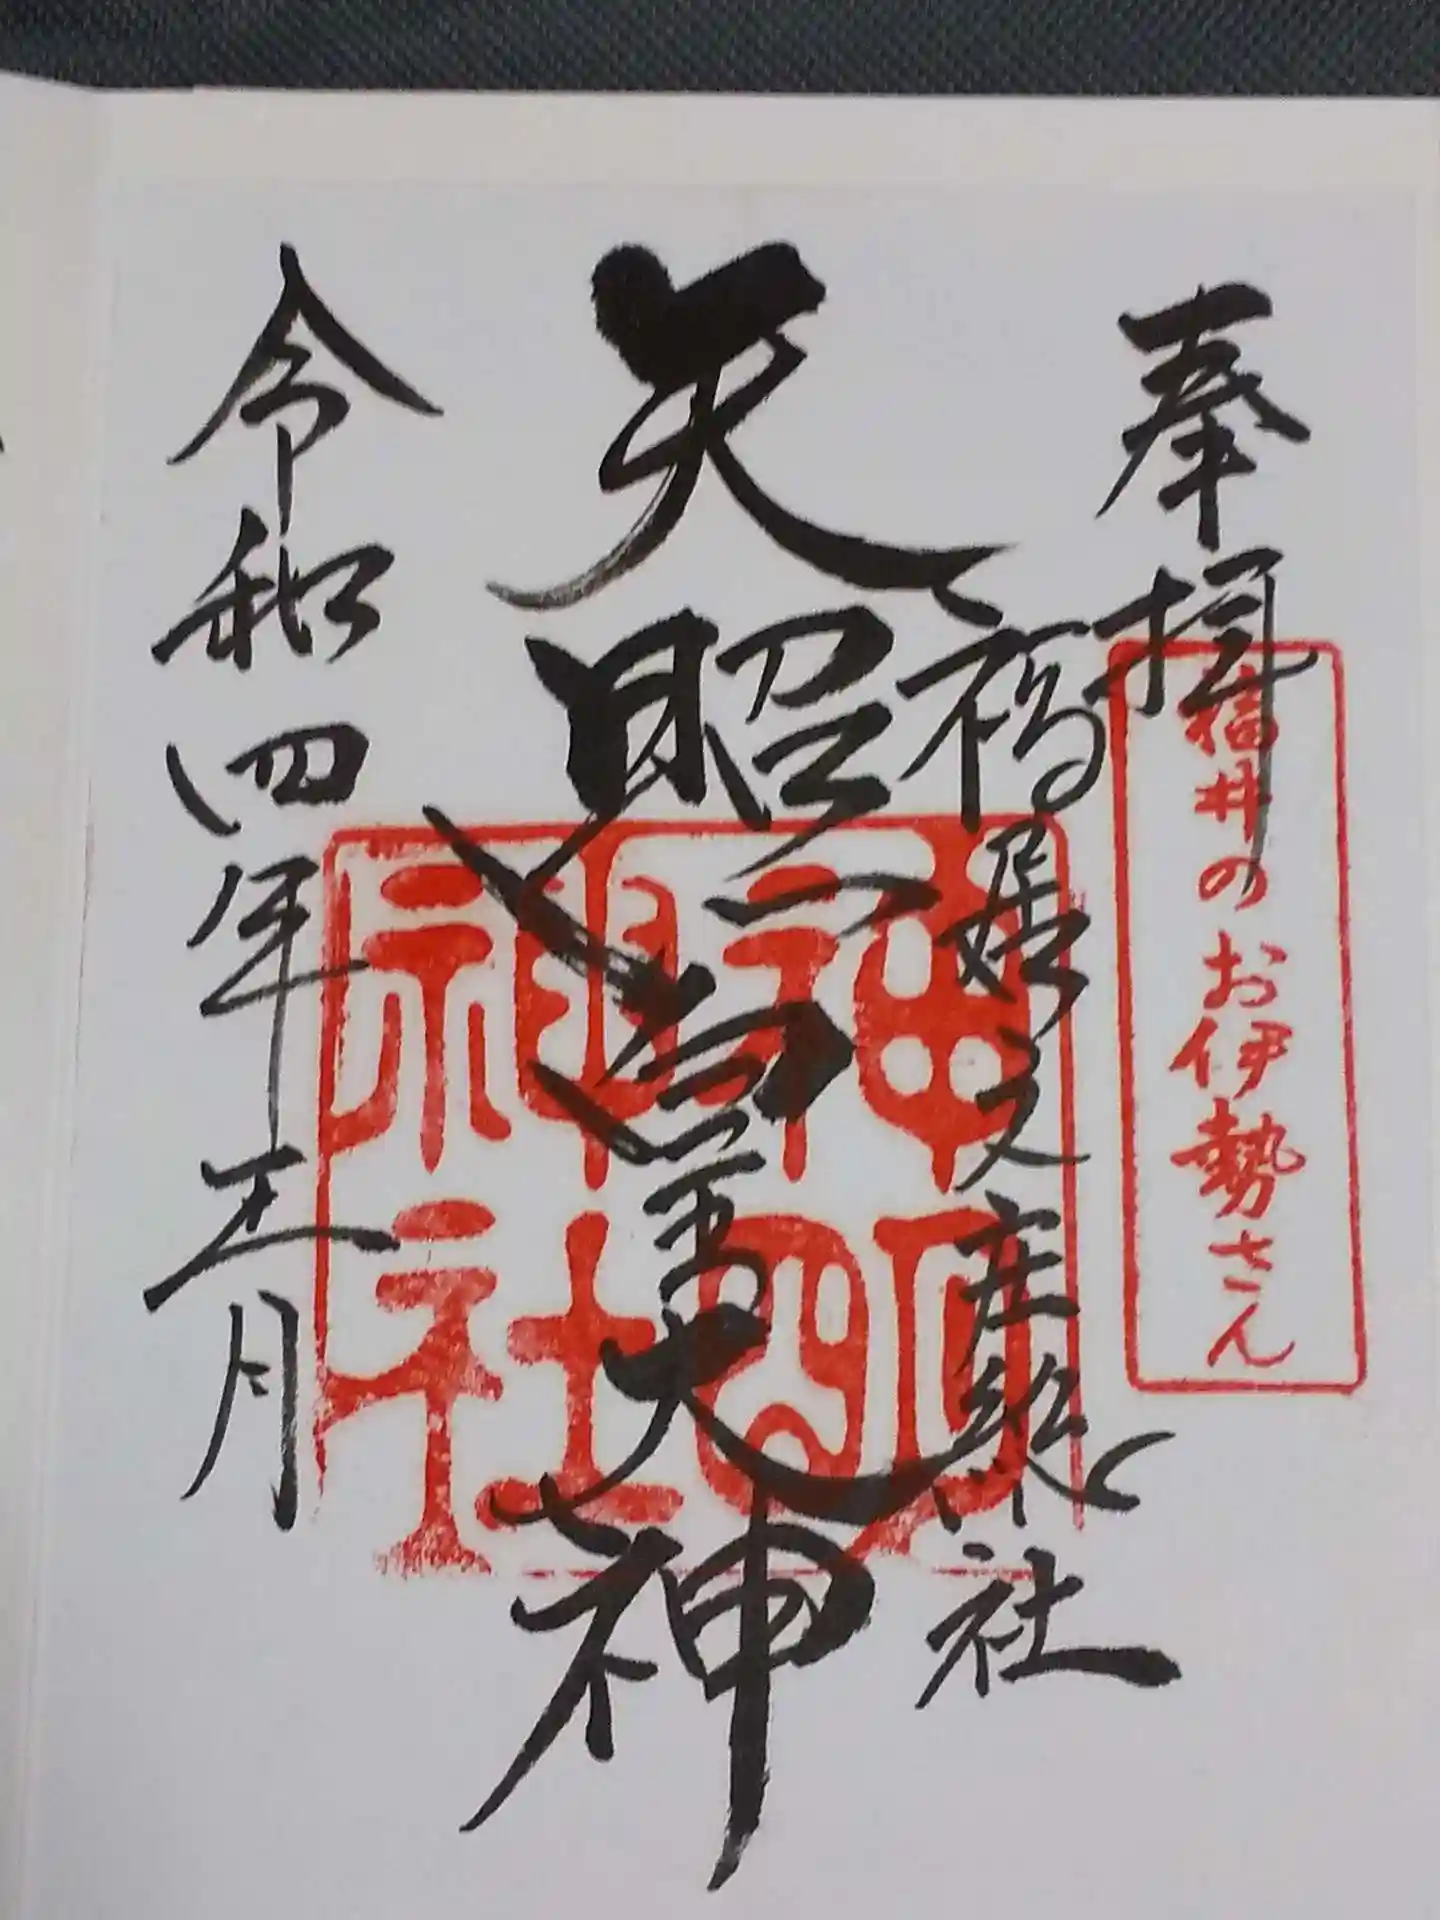 奉拝
福井のお伊勢さん
福居之庄総社
天照皇大神
神明神社
令和四年五月